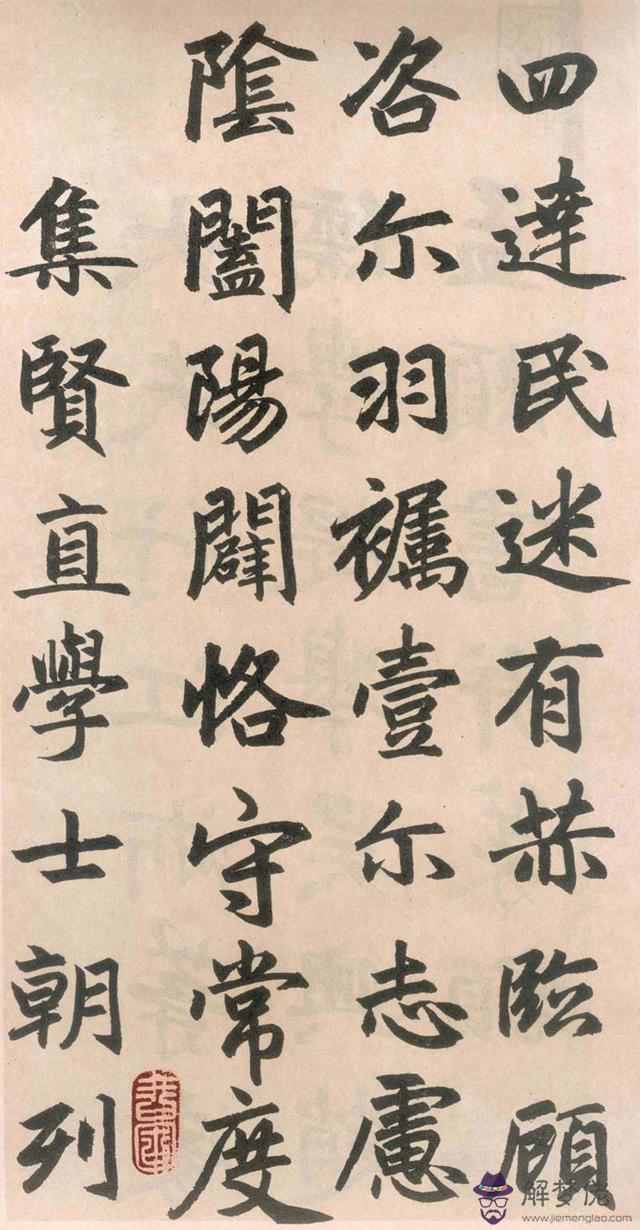 四達民迷有赫臨顧
咨尔羽壹尔志慮
陰闔陽闢恪守常度
集賢直學士朝列
解梦佬
www.jiemenglao.com